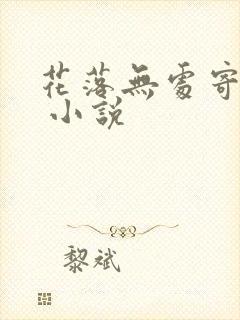 花落無處寄
小說
黎斌